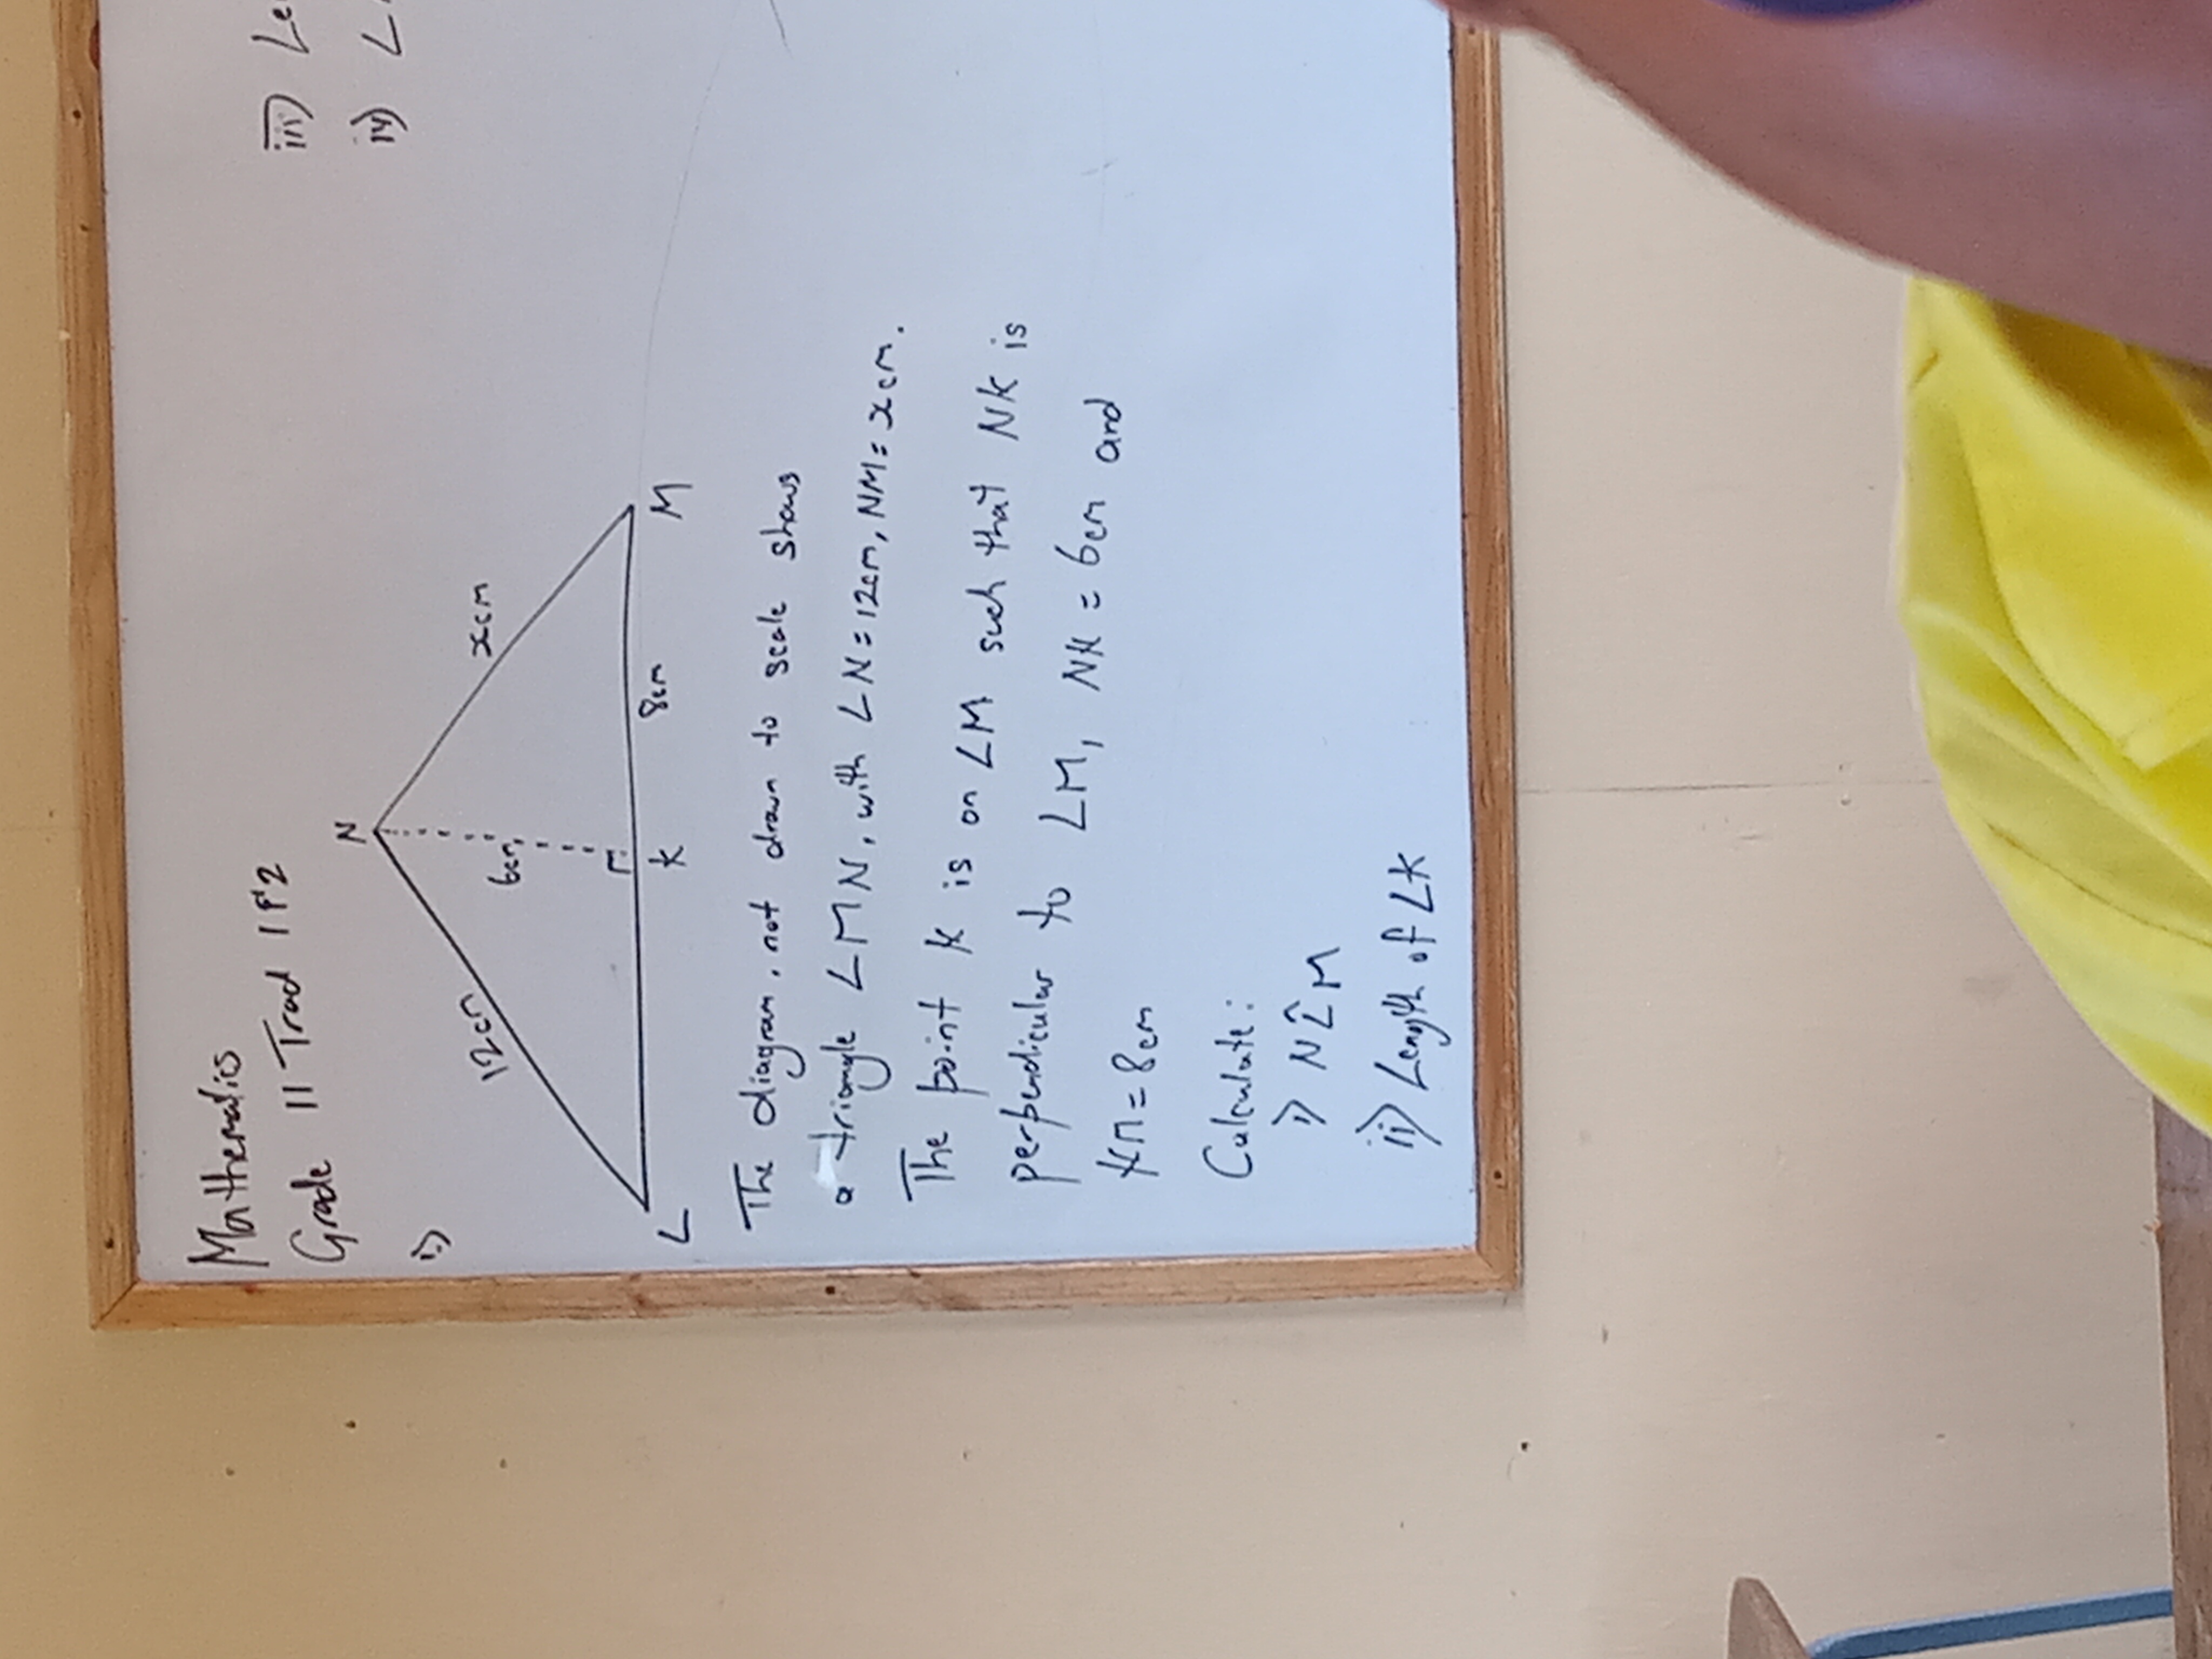 Mathematics
Grade 11 Trad 1 P2
1.)
N
12cm
xcm
6cm
L
K
8cm
M
The diagram, not drawn to scale shows
a triangle LMN, with LN = 12cm, NM = xcm.
The point K is on LM such that NK is
perpendicular to LM, NK = 6cm and
KM = 8cm
Calculate:
i) NL̂M
ii) Length of LK
iii)
iv)